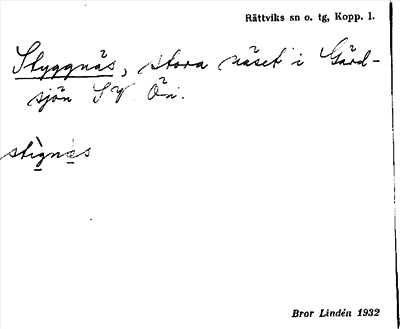 Rättviks sn o. tg, Kopp. l.
Styggnäs, stora näset i Gärd-
sjön SV Ön.
stìgnes
Bror Lindén 1932